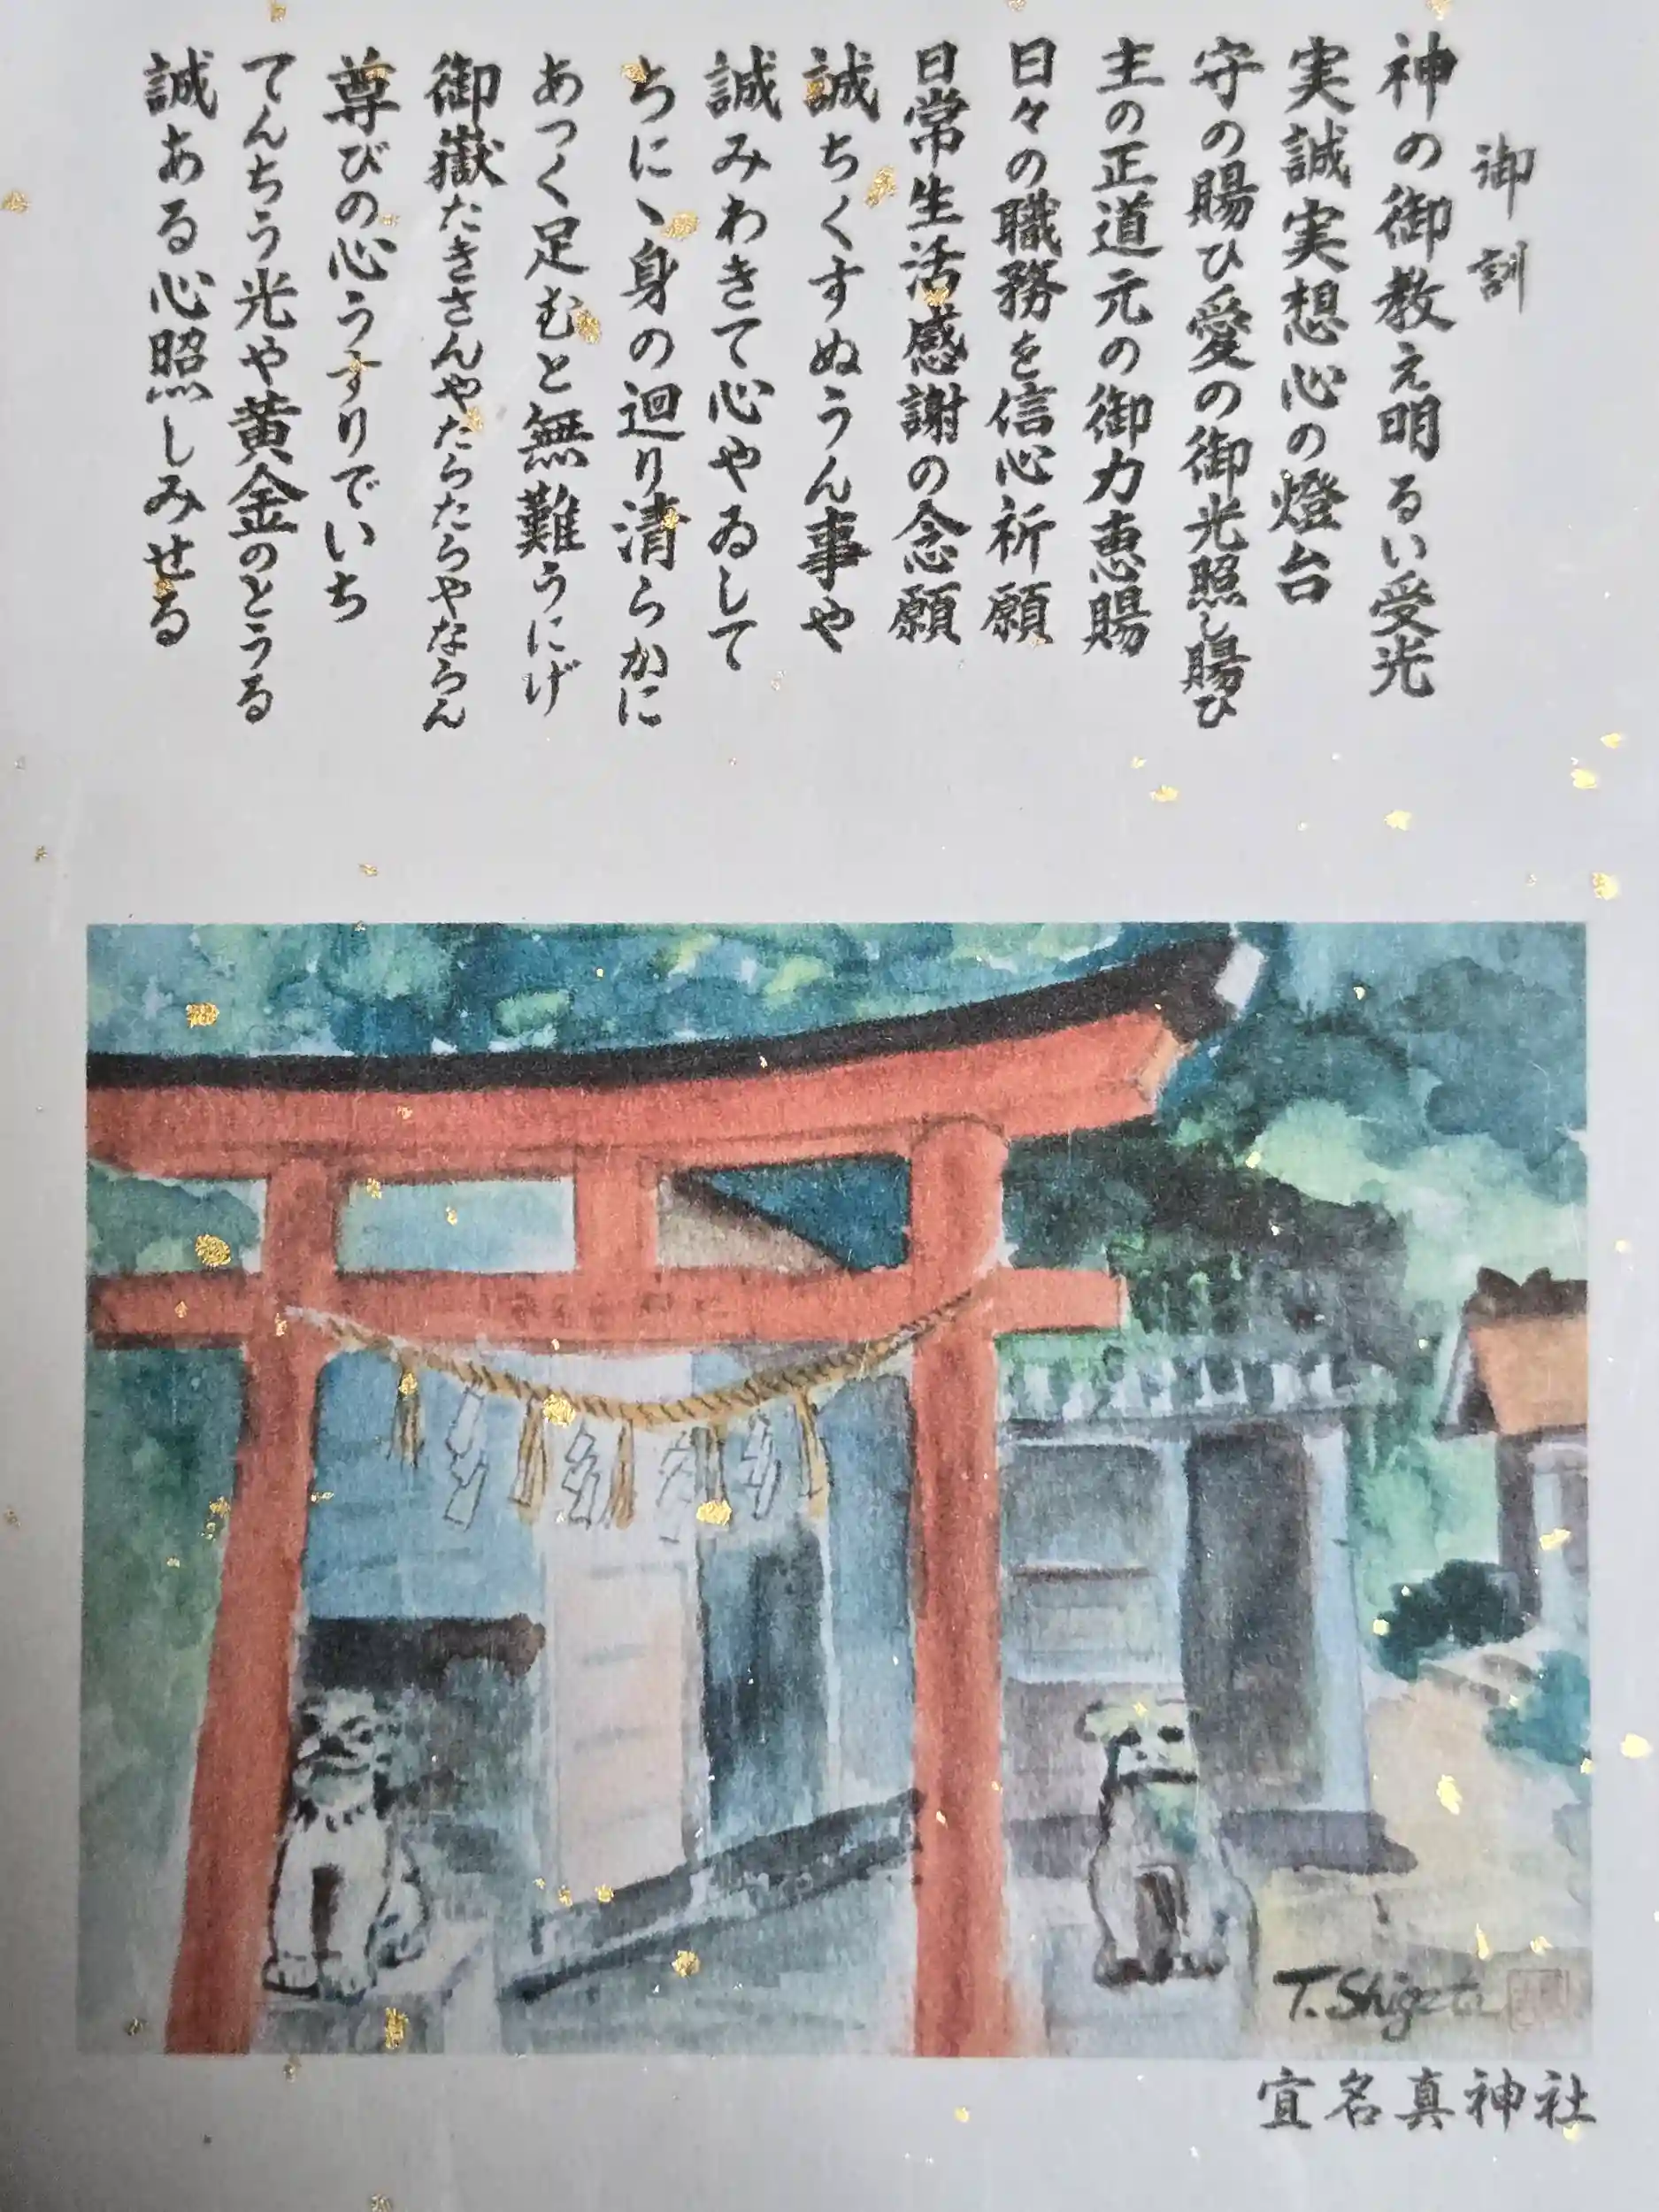 御訓
神の御教え明るい受光
実誠実想心の燈台
守の賜ひ愛の御光照し賜ひ
主の正道元の御力恵賜
日々の職務を信心祈願
日常生活感謝の念願
誠ちくすぬうん事や
誠みわきて心やゐして
ちに丶身の迴り清らかに
あつく足むと無難うにげ
御嶽たきさんやたらたらやならん
尊びの心うすりでいち
てんちう光や黄金のとうる
誠ある心照しみせる
T.Shigeta
宜名真神社